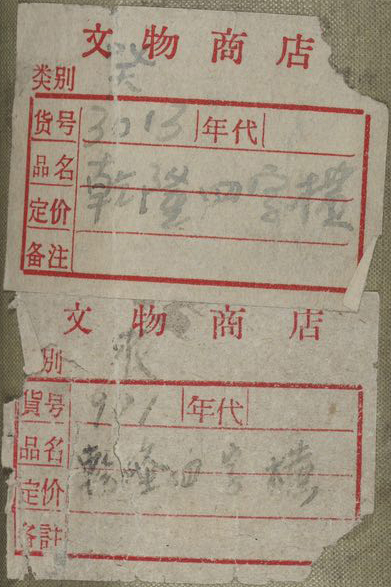 文物商店
类别
货号 3013 年代
品名 乾隆四字横
定价
备注
文物商店
别
貨号 年代
品名 乾隆四字横
定价
备註